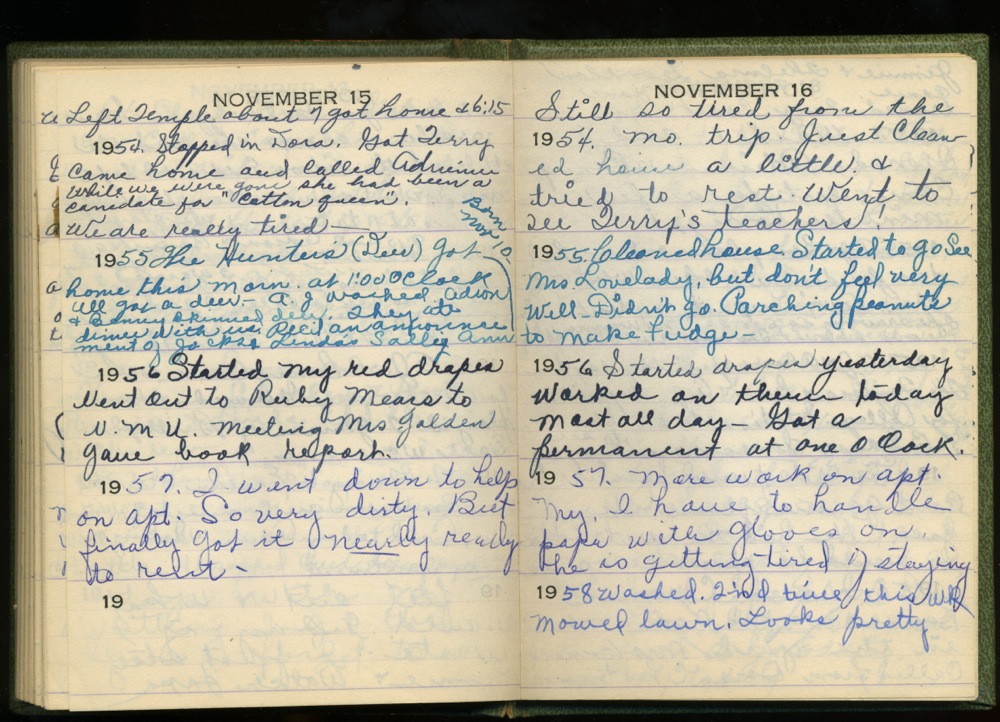 NOVEMBER 15
Left Temple about 7 got home at 6:15
1954. Stopped in Dora. Got Terry
Came home and called Adrienne
While we were gone she had been a
canidate for "Cotton queen".
We are really tired —
Born
Nov 10
1955 The Hunters (Deer) got
home this morn. at 1:00 O Clock
all got a deer — A. J. worked
& Benny skinned deer. They ate
dinner with us. Rec'd an announce
ment of Linda's Sally Ann
1956 Started my red drapes
Went out to Ruby Mears to
W. M. U. meeting Mrs Golden
gave book report.
1957. I went down to help
on apt. So very dirty. But
finally got it nearly ready
to rent —
19
NOVEMBER 16
Still so tired from the
1954. Mo. trip. Just Clean
ed house a little &
tried to rest. Went to
see Terry's teachers!
1955. Cleaned house. Started to go See
Mrs Lovelady, but don't feel very
Well — Didn't go. Parching peanuts
to make Fudge —
1956 Started drapes yesterday
Worked on them today
most all day — Got a
permanent at one O Clock.
1957. More work on apt.
My, I have to handle
papa with gloves on
he is getting tired of staying
1958 Washed. 2nd time this wk
Mowed lawn. Looks pretty